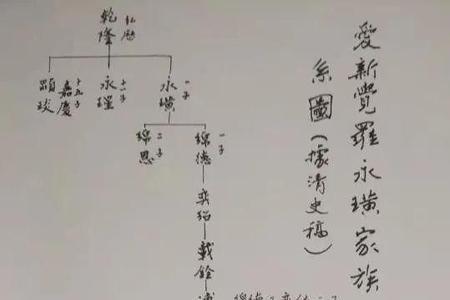 愛新覺羅永璜家族
系圖(據清史稿)
乾隆 弘曆
永璜 一子
永瑆 十一子
嘉慶 十五子
顒琰
綿德 一子
綿恩 二子
奕紹
載銓
溥